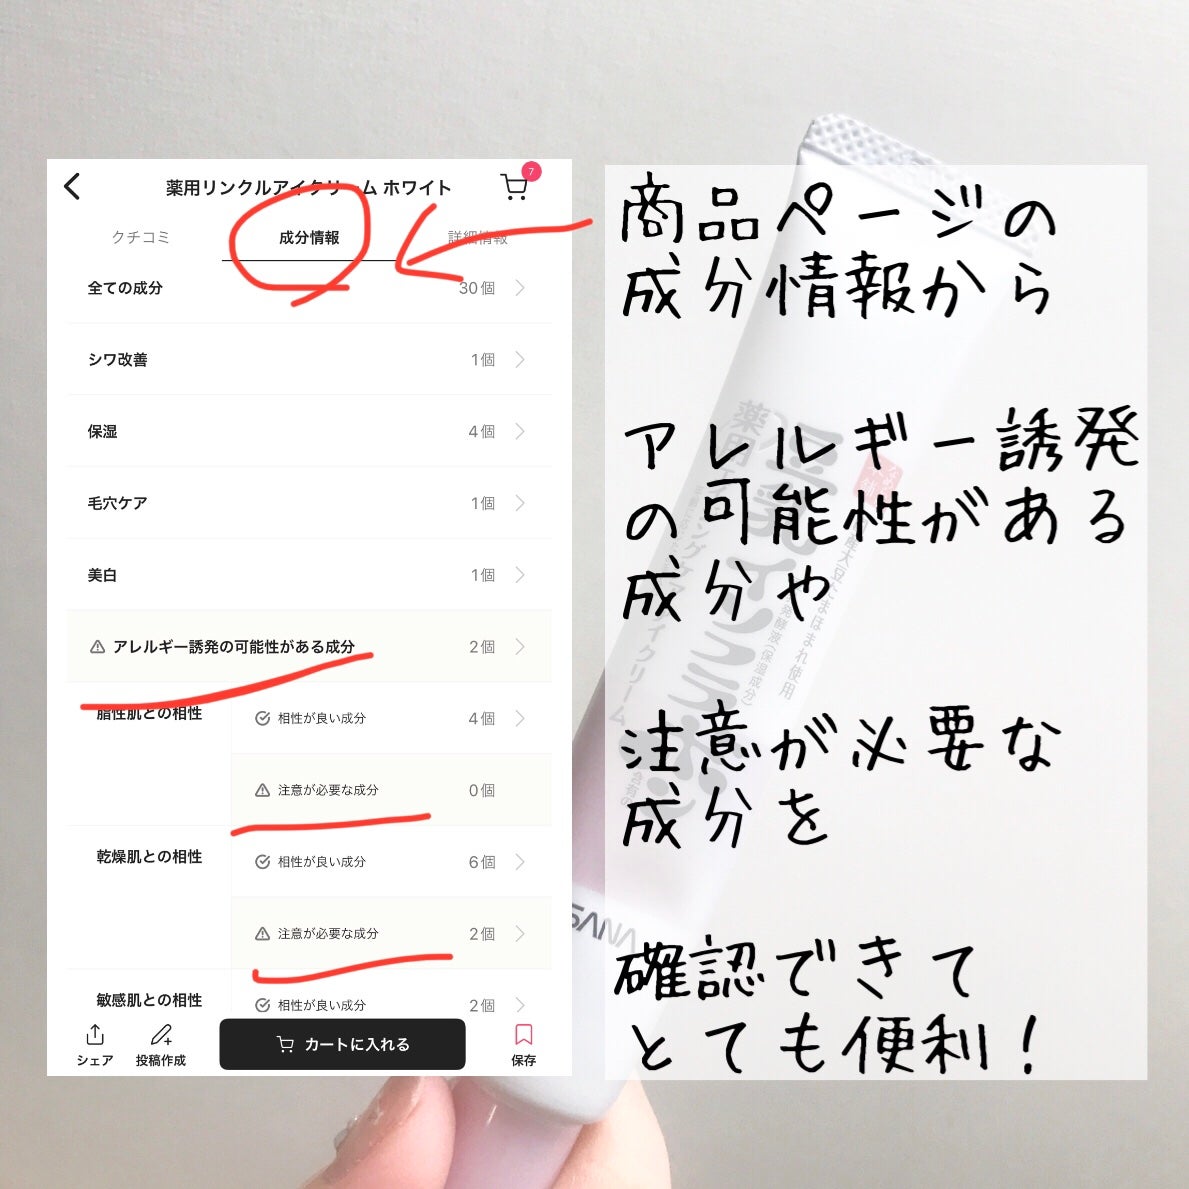 薬用リンクルアイクリーム ホワイト
7
クチコミ
成分情報
詳細情報
全ての成分 30個
シワ改善 1個
保湿 4個
毛穴ケア 1個
美白 1個
アレルギー誘発の可能性がある成分 2個
脂性肌との相性
相性が良い成分 4個
注意が必要な成分 0個
乾燥肌との相性
相性が良い成分 6個
注意が必要な成分 2個
敏感肌との相性
相性が良い成分 2個
シェア
投稿作成
カートに入れる
保存
商品ページの
成分情報から
アレルギー誘発
の可能性がある
成分や
注意が必要な
成分を
確認できて
とても便利!
SANA